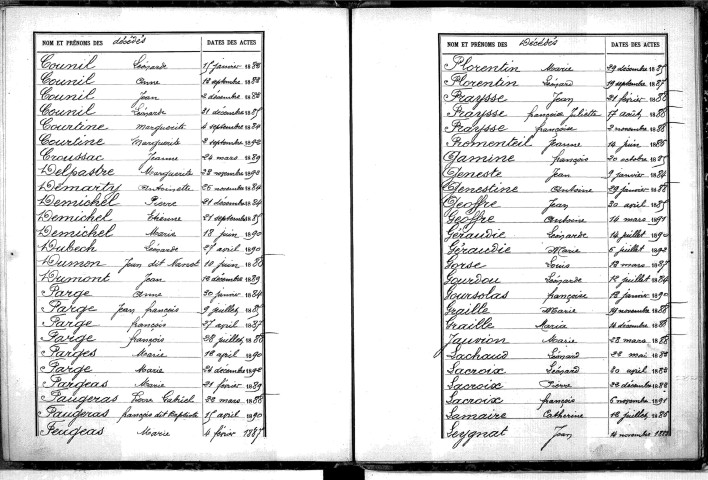 NOM ET PRÉNOMS DES décédés DATES DES ACTES
Counil Léonarde 15 janvier 1888
Counil Anne 12 septembre 1888
Counil Jean 2 décembre 1888
Counil Léonarde 21 décembre 1885
Courtine Marguerite 4 septembre 1884
Courtine Marguerite 2 septembre 1892
Croussac Jeanne 24 mars 1889
Delpastre Marguerite 28 novembre 1890
Demarty Antoinette 26 novembre 1884
Demichel Pierre 21 décembre 1884
Demichel Etienne 21 septembre 1885
Demichel Marie 18 juin 1890
Dubech Léonarde 27 avril 1890
Dumon Jean dit Nanot 10 juin 1886
Dumont Jean 12 décembre 1889
Farge Anne 30 janvier 1884
Farge Jean françois 9 juillet 1885
Farge françois 27 avril 1887
Farge françois 28 juillet 1886
Farges Marie 18 avril 1890
Farge Marie 24 décembre 1892
Fargeas Marie 21 février 1889
Faugeras Gabriel 22 mars 1886
Faugeras françois dit Baptiste 15 avril 1890
Feugeas Marie 4 février 1887
NOM ET PRÉNOMS DES Décédés DATES DES ACTES
Florentin Marie 29 décembre 1885
Florentin Léonard 19 septembre 1887
Fraysse Jean 21 février 1886
Fraysse françoise Juliette 17 août 1886
Fraysse françoise 2 novembre 1886
Fromenteil Jeanne 14 juin 1886
Gamine françois 20 octobre 1885
Geneste Jean 9 janvier 1884
Genestine Antoine 29 janvier 1886
Geoffre Jean 30 avril 1885
Geoffre Antoine 14 mars 1891
Géraudie Léonarde 14 juillet 1890
Géraudie Marie 5 juillet 1892
Gorse Louis 12 mars 1887
Gourdou Léonarde 12 juillet 1884
Goursolas françoise 12 janvier 1890
Graille Marie 19 novembre 1886
Graille Maria 14 décembre 1888
Jauvion Marie 28 mars 1886
Lachaud Léonard 22 mai 1888
Lacroix Léonard 20 avril 1888
Lacroix Pierre 22 décembre 1888
Lacroix françois 6 novembre 1891
Lamaire Catherine 12 juillet 1886
Leygnat Jean 14 novembre 1888